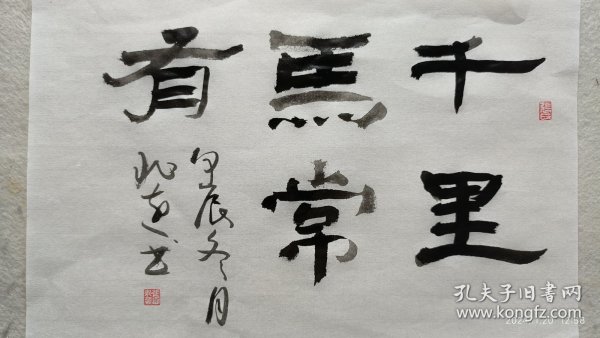 千里
馬常
有
甲辰冬月
书
孔夫子旧书网
www.kongfz.com
12:58